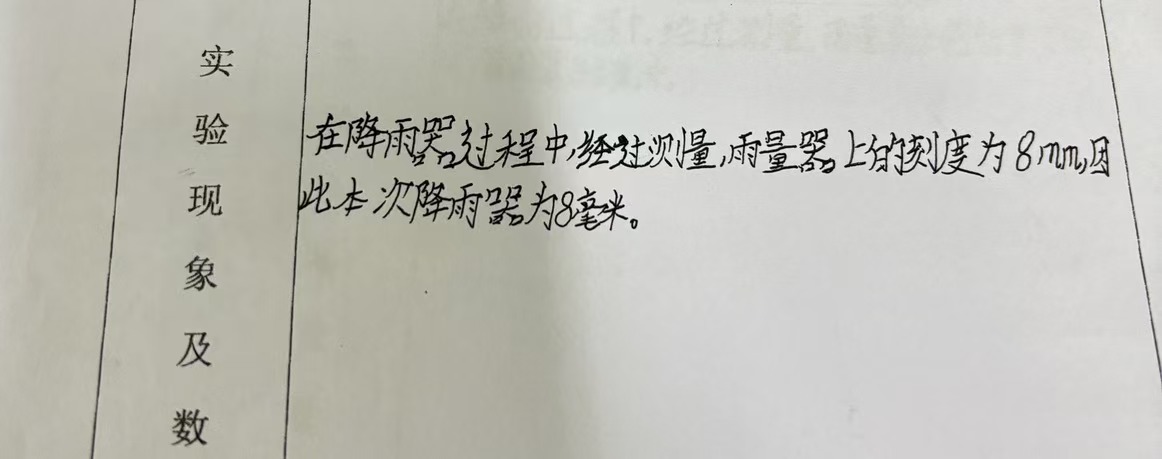 实
验
现
象
及
数
在降雨器过程中,经过测量,雨量器上的刻度为8mm,因
此本次降雨器为8毫米。